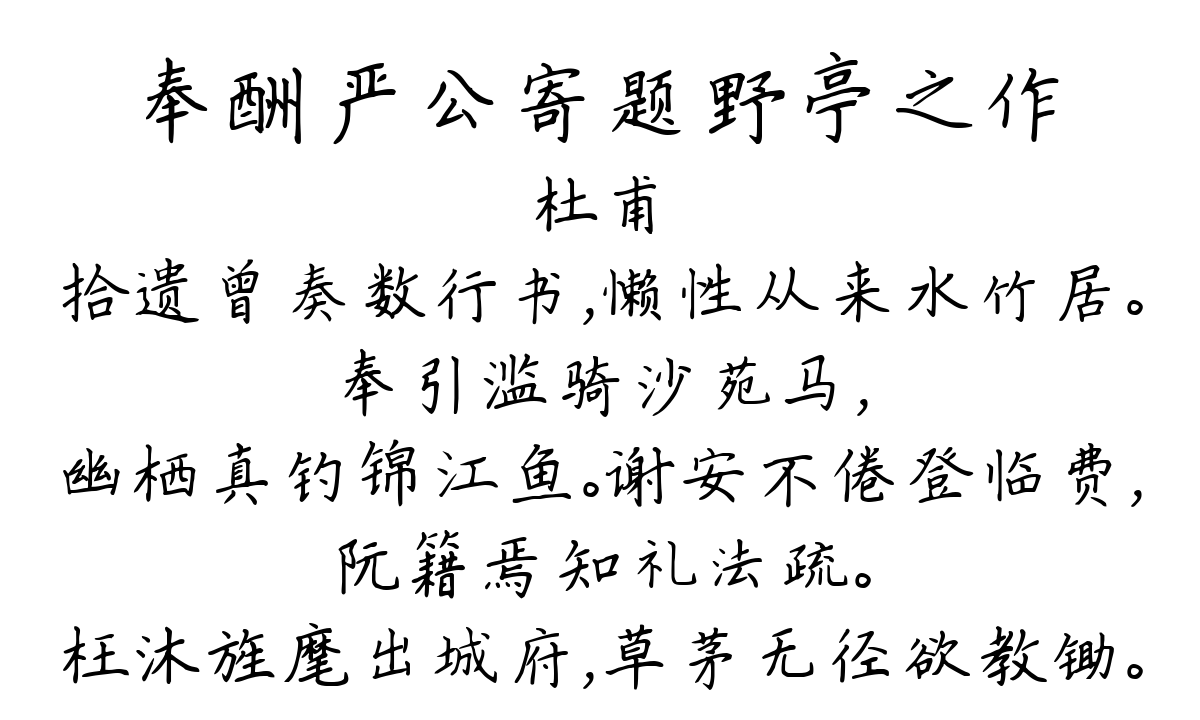 奉酬严公寄题野亭之作
杜甫
拾遗曾奏数行书,懒性从来水竹居。
奉引滥骑沙苑马,
幽栖真钓锦江鱼。谢安不倦登临费,
阮籍焉知礼法疏。
枉沐旌麾出城府,草茅无径欲教锄。